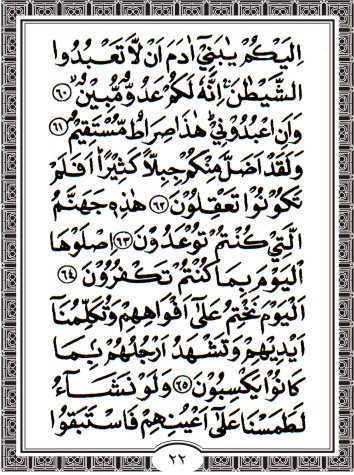 اِلَيۡكُمۡ يٰبَنِىۡۤ اٰدَمَ اَنۡ لَّا تَعۡبُدُوا
الشَّيۡطٰنَ ۚ اِنَّهٗ لَكُمۡ عَدُوٌّ مُّبِيۡنٌ ۙ‏ ﴿۶۰﴾
وَّاَنِ اعۡبُدُوۡنِىۡ ؕ هٰذَا صِرَاطٌ مُّسۡتَقِيۡمٌ‏ ﴿۶۱﴾
وَلَقَدۡ اَضَلَّ مِنۡكُمۡ جِبِلًّا كَثِيۡرًا ؕ اَفَلَمۡ
تَكُوۡنُوۡا تَعۡقِلُوۡنَ‏ ﴿۶۲﴾ هٰذِهٖ جَهَنَّمُ
الَّتِىۡ كُنۡتُمۡ تُوۡعَدُوۡنَ‏ ﴿۶۳﴾ اِصۡلَوۡهَا
الۡيَوۡمَ بِمَا كُنۡتُمۡ تَكۡفُرُوۡنَ‏ ﴿۶۴﴾
اَلۡيَوۡمَ نَخۡتِمُ عَلٰٓى اَفۡوَاهِهِمۡ وَتُكَلِّمُنَاۤ
اَيۡدِيۡهِمۡ وَتَشۡهَدُ اَرۡجُلُهُمۡ بِمَا
كَانُوۡا يَكۡسِبُوۡنَ‏ ﴿۶۵﴾ وَلَوۡ نَشَآءُ
لَطَمَسۡنَا عَلٰٓى اَعۡيُنِهِمۡ فَاسۡتَبَقُوا
۲۲